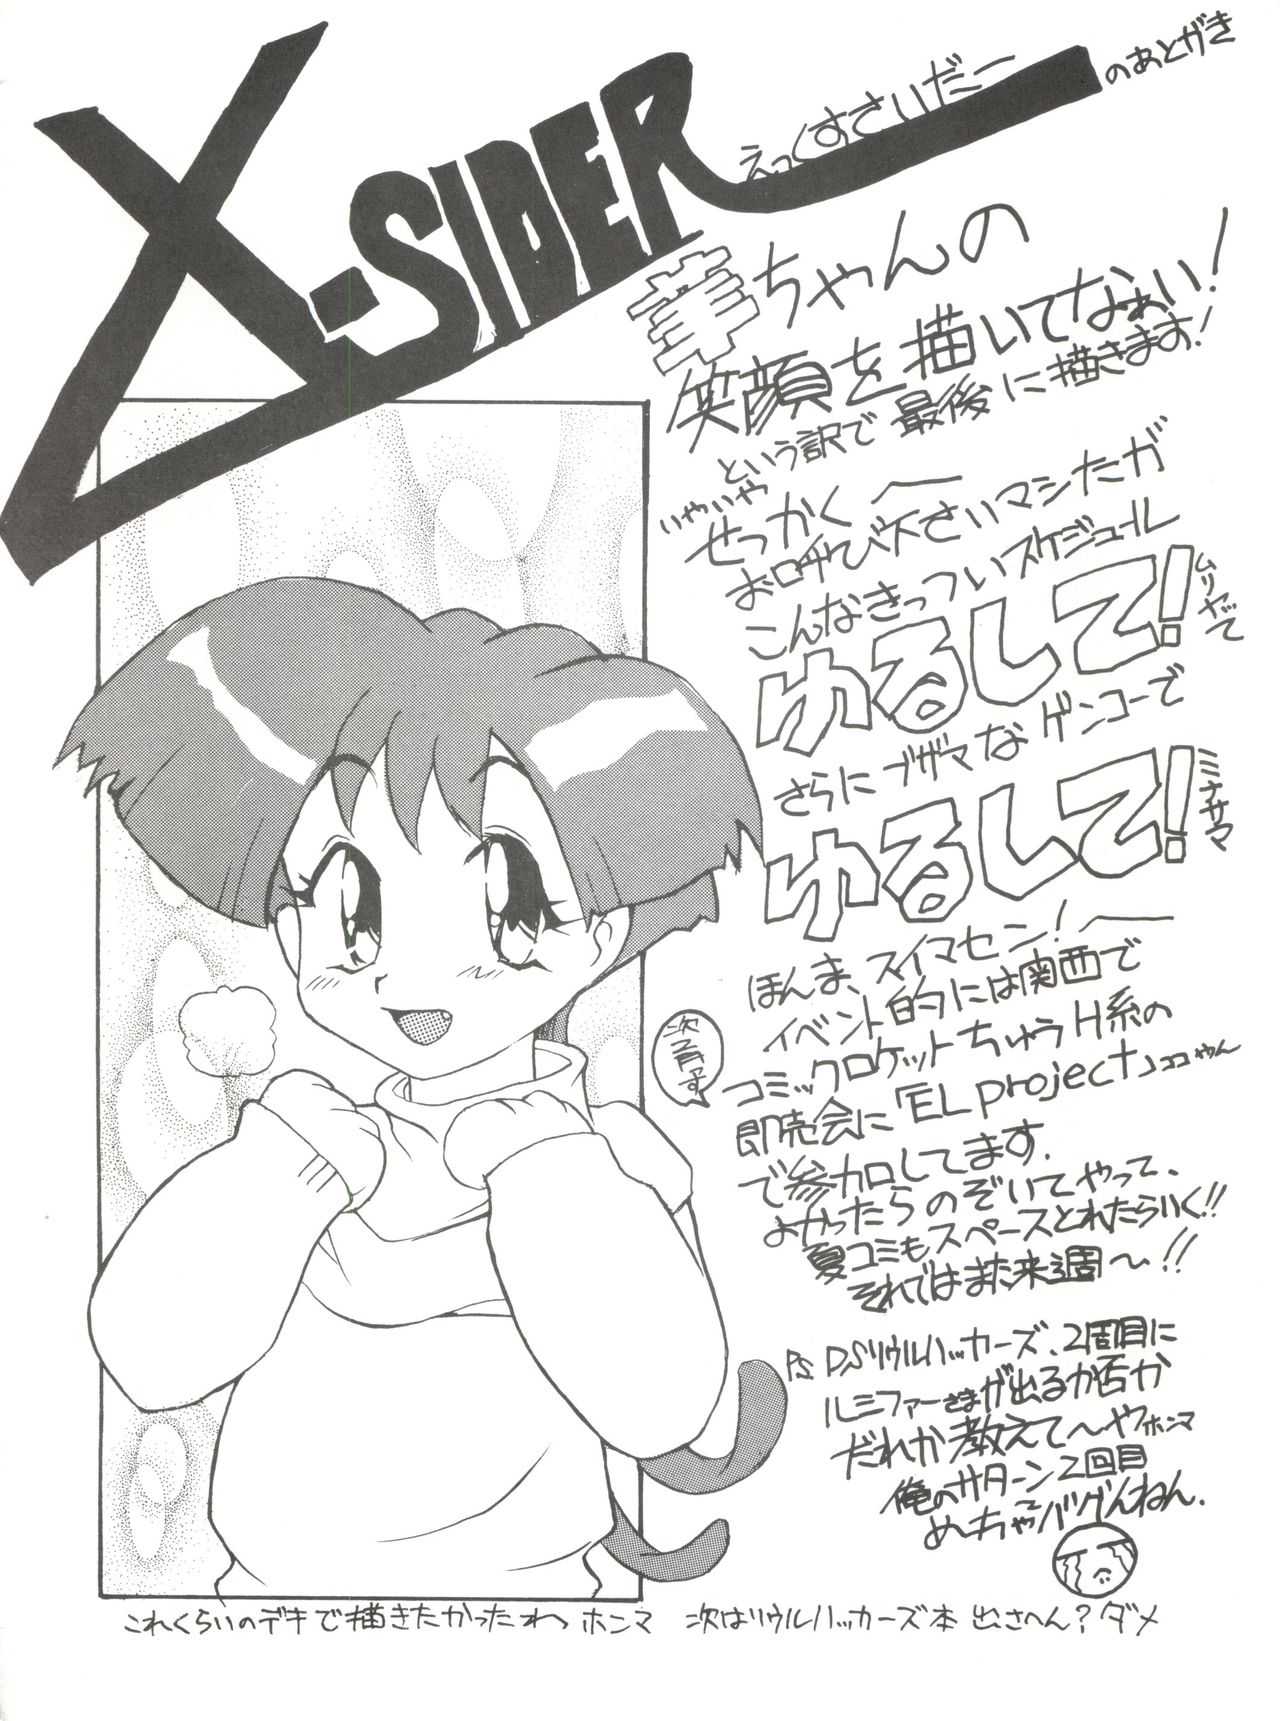 X-SIDER
えっくすさいだー
のあとがき
華ちゃんの
笑顔を描いてなぁい!
という訳で最後に描きます!
いやいや
せっかく
お呼び下さいマシたガ
こんなきっついスケジュール
ゆるして!
ムリヤって
さらにブザマなゲンコーで
ゆるして!
ミナサマ
ほんま、スイマセン!
イベント的には関西で
コミックロケットちゅうH系の
即売会に「EL project」
ココやん
で参加してます.
よかったらのぞいてやって、
夏コミもスペースとれたらいく!!
それではまた来週〜!!
P.S. D.Sソウルハッカーズ、2周目に
ルシファーさまが出るか否か
だれか教えて〜やホンマ
俺のサターン2回目
めーちゃバグんねん.
これくらいのデキで描きたかったわっ ホンマ 次はソウルハッカーズ本 出さへん? ダメ